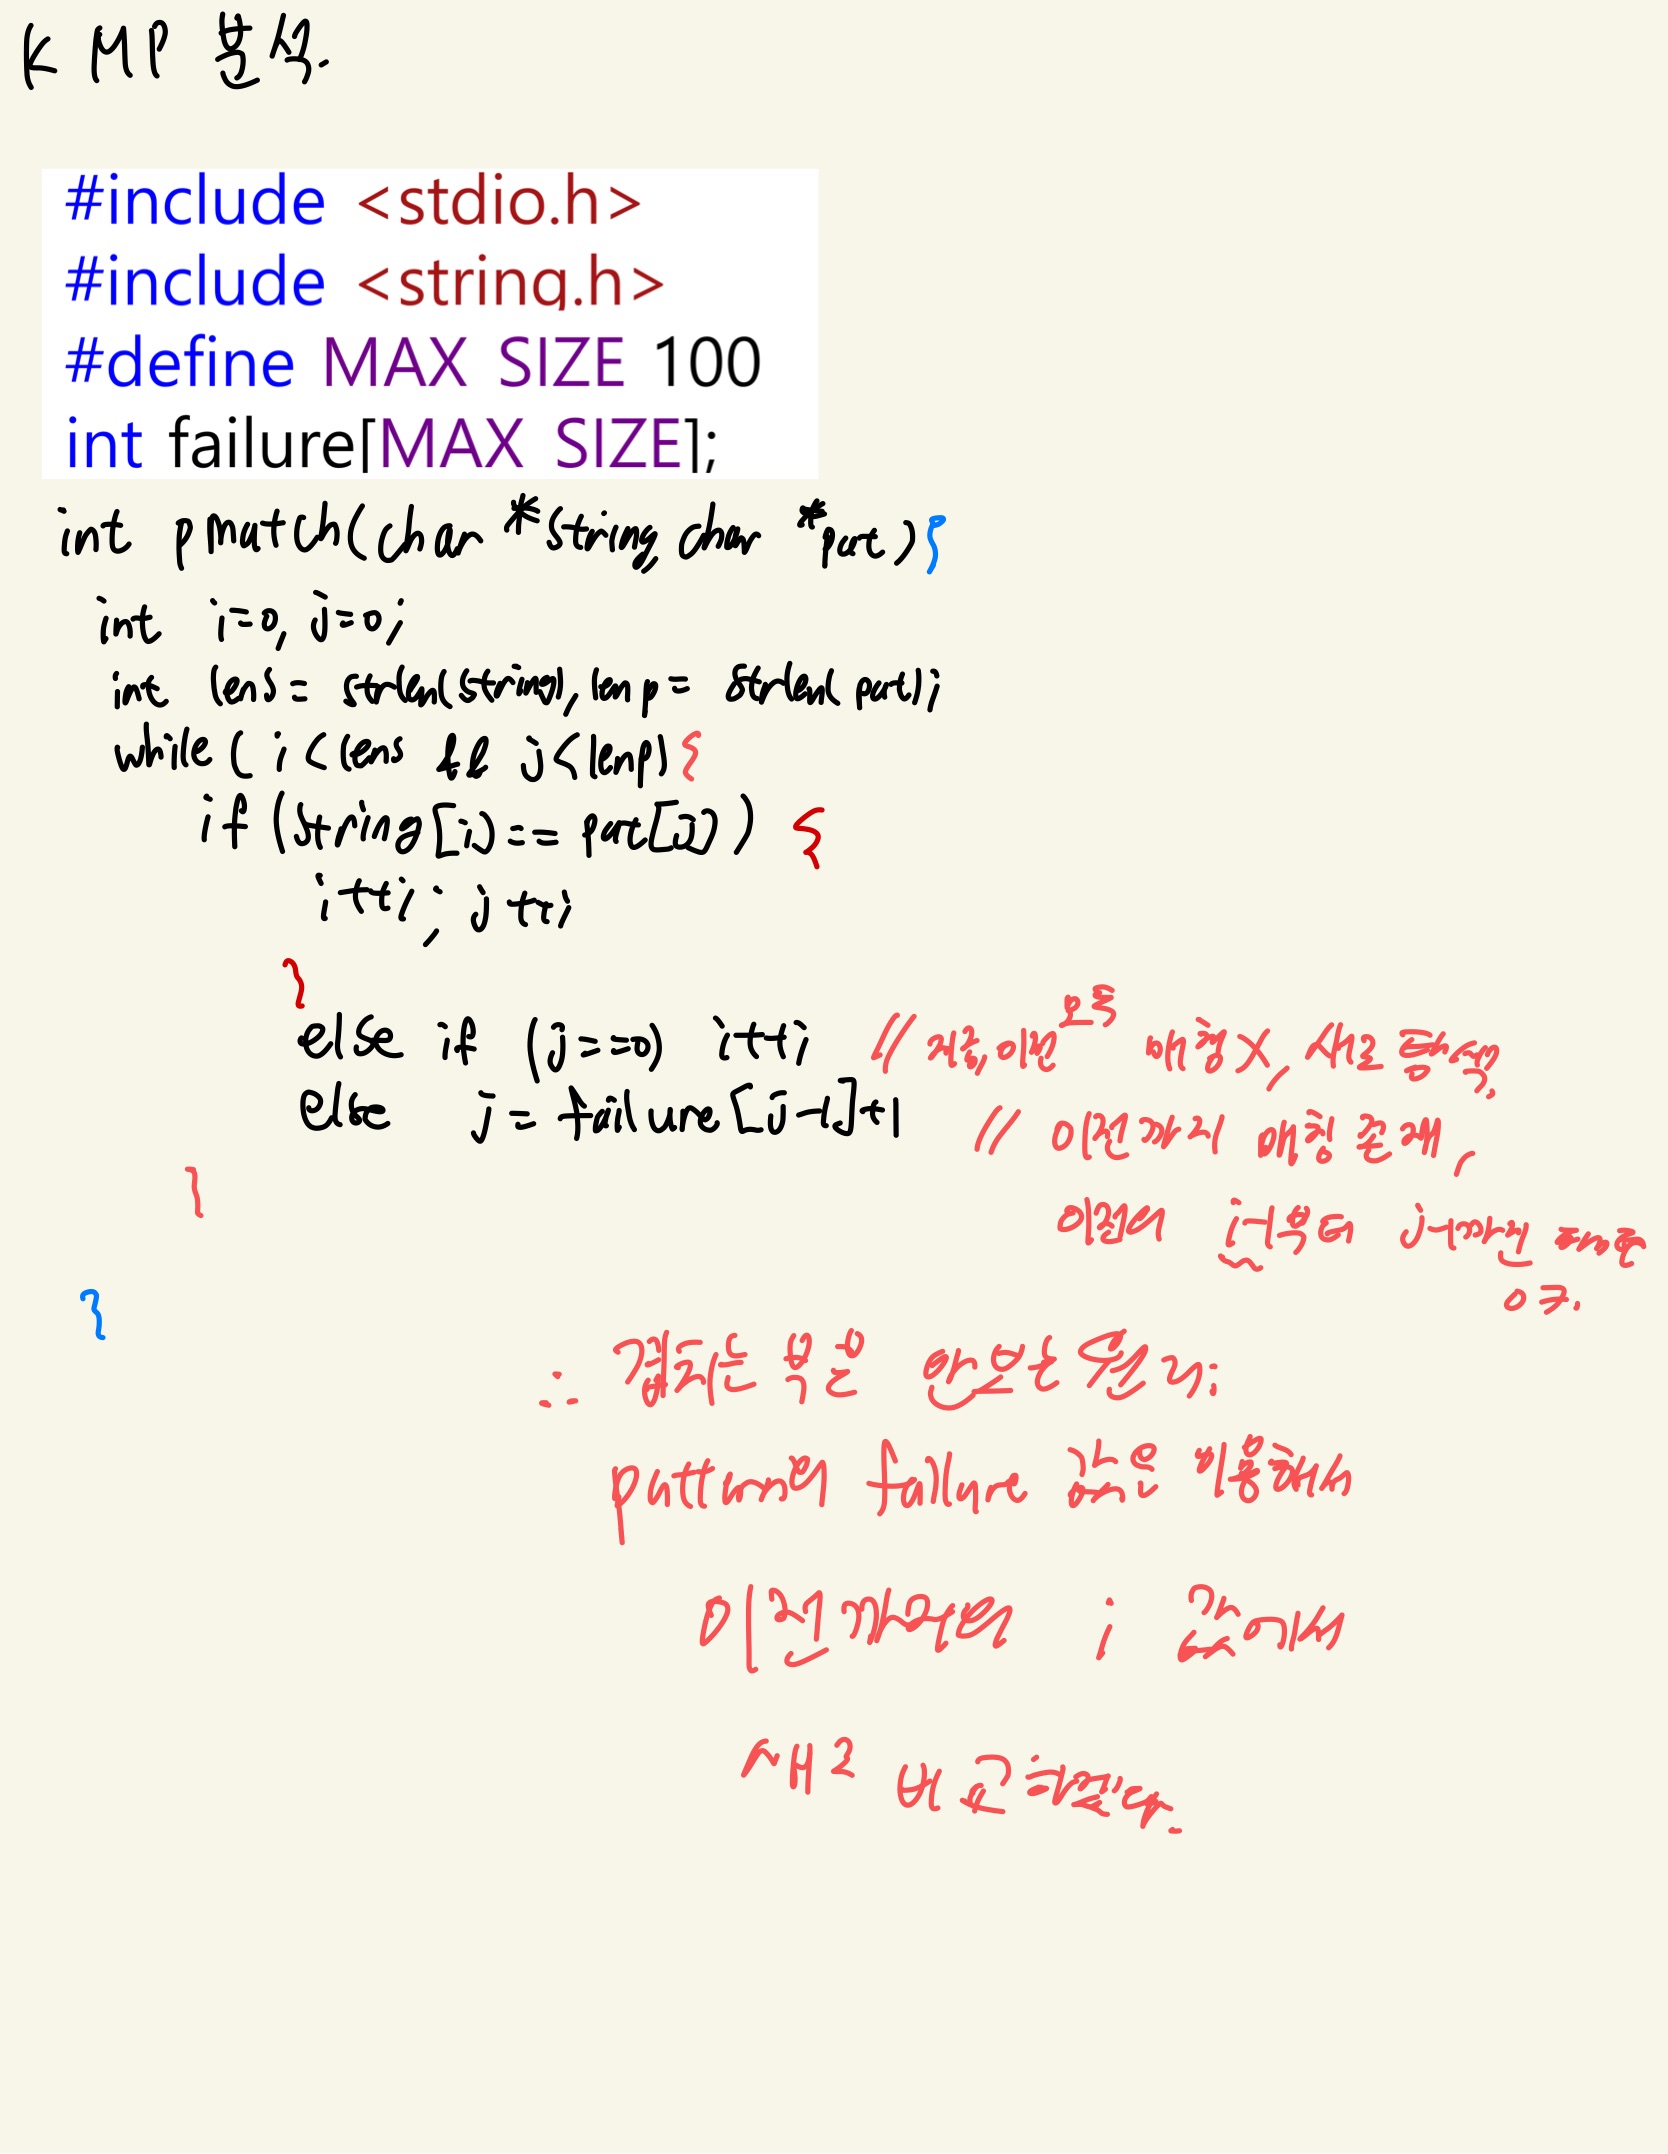 KMP 분석.
#include <stdio.h>
#include <string.h>
#define MAX SIZE 100
int failure[MAX SIZE];
int pmatch(char *string, char *pat){
int i=0, j=0;
int lens = strlen(string), lenp = strlen(pat);
while ( i<lens && j<lenp) {
if (string[i] == pat[j]) {
i++; j++;
}
else if (j==0) i++; // 지금, 이전 모두 매칭X, 새로 탐색.
else j = failure[j-1]+1 // 이전까지 매칭 존재,
}
이전의 i-1부터 j-1까진
}
∴ 겹치는 부분 안보는 원리;
pattern의 failure 값을 이용해서
이전까지의 i 값에서
새로 비교하겠다.